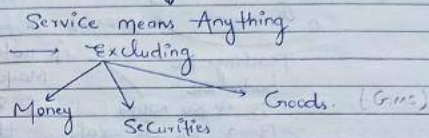 Service means Anything
→ Excluding
Money Securities Goods. (GMS)